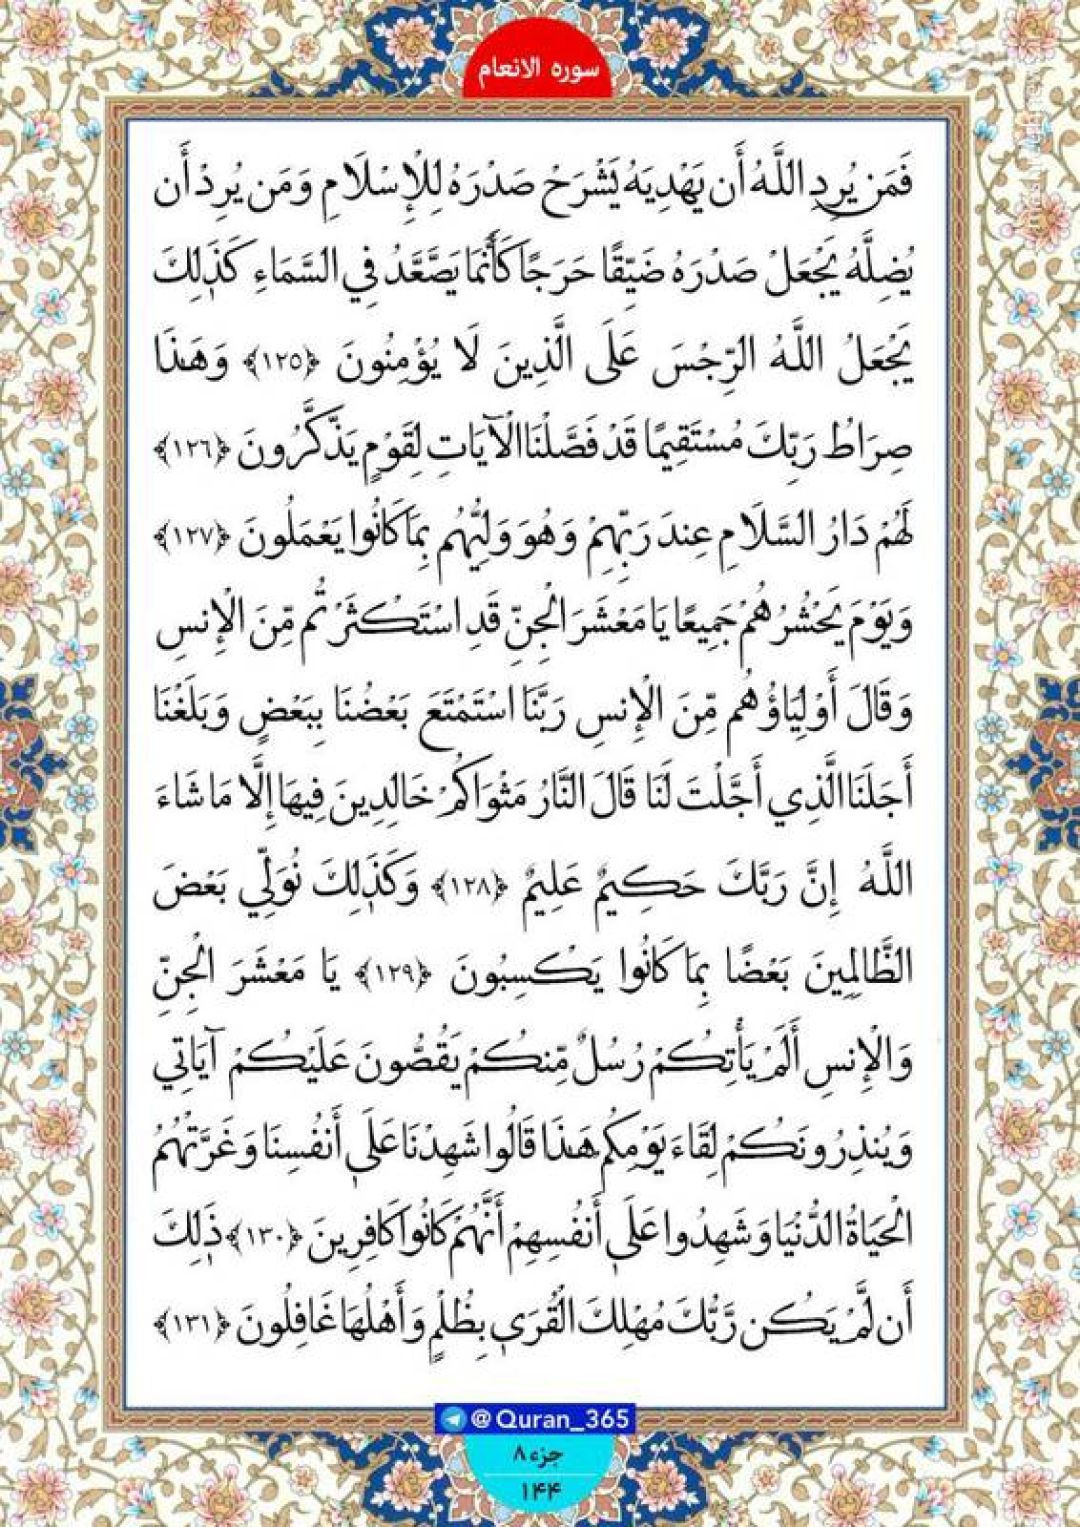 سوره الانعام
فَمَن يُرِدِ اللَّهُ أَن يَهْدِيَهُ يَشْرَحْ صَدْرَهُ لِلْإِسْلَامِ وَمَن يُرِدْ أَن
يُضِلَّهُ يَجْعَلْ صَدْرَهُ ضَيِّقًا حَرَجًا كَأَنَّمَا يَصَّعَّدُ فِي السَّمَاءِ كَذَٰلِكَ
يَجْعَلُ اللَّهُ الرِّجْسَ عَلَى الَّذِينَ لَا يُؤْمِنُونَ ﴿١٢٥﴾ وَهَذَا
صِرَاطُ رَبِّكَ مُسْتَقِيمًا قَدْ فَصَّلْنَا الْآيَاتِ لِقَوْمٍ يَذَّكَّرُونَ ﴿١٢٦﴾
لَهُمْ دَارُ السَّلَامِ عِندَ رَبِّهِمْ وَهُوَ وَلِيُّهُم بِمَا كَانُوا يَعْمَلُونَ ﴿١٢٧﴾
وَيَوْمَ يَحْشُرُهُمْ جَمِيعًا يَا مَعْشَرَ الْجِنِّ قَدِ اسْتَكْثَرْتُم مِّنَ الْإِنسِ
وَقَالَ أَوْلِيَاؤُهُم مِّنَ الْإِنسِ رَبَّنَا اسْتَمْتَعَ بَعْضُنَا بِبَعْضٍ وَبَلَغْنَا
أَجَلَنَا الَّذِي أَجَّلْتَ لَنَا قَالَ النَّارُ مَثْوَاكُمْ خَالِدِينَ فِيهَا إِلَّا مَا شَاءَ
اللَّهُ إِنَّ رَبَّكَ حَكِيمٌ عَلِيمٌ ﴿١٢٨﴾ وَكَذَٰلِكَ نُوَلِّي بَعْضَ
الظَّالِمِينَ بَعْضًا بِمَا كَانُوا يَكْسِبُونَ ﴿١٢٩﴾ يَا مَعْشَرَ الْجِنِّ
وَالْإِنسِ أَلَمْ يَأْتِكُمْ رُسُلٌ مِّنكُمْ يَقُصُّونَ عَلَيْكُمْ آيَاتِي
وَيُنذِرُونَكُمْ لِقَاءَ يَوْمِكُمْ هَذَا قَالُوا شَهِدْنَا عَلَىٰ أَنفُسِنَا وَغَرَّتْهُمُ
الْحَيَاةُ الدُّنْيَا وَشَهِدُوا عَلَىٰ أَنفُسِهِمْ أَنَّهُمْ كَانُوا كَافِرِينَ ﴿١٣٠﴾ ذَٰلِكَ
أَن لَّمْ يَكُن رَّبُّكَ مُهْلِكَ الْقُرَىٰ بِظُلْمٍ وَأَهْلُهَا غَافِلُونَ ﴿١٣١﴾
@Quran_365
جزء ٨
١۴۴